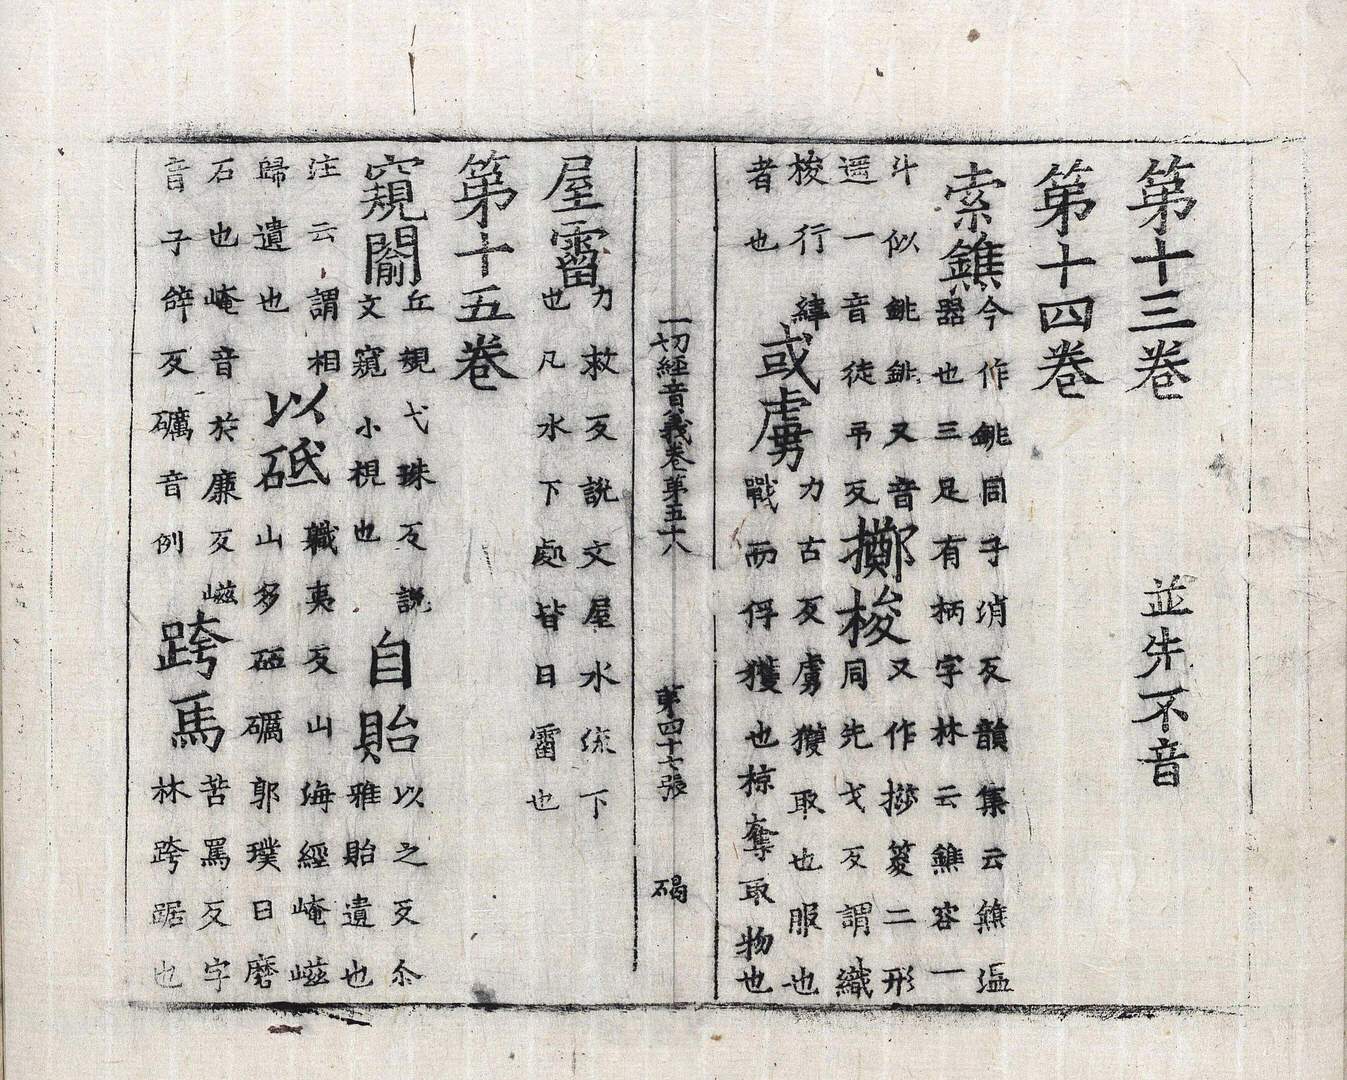 第十三卷 並先不音
第十四卷
索鐎
今作銚同子消反韻集云鐎溫
器也三足有柄字林云鐎容一
斗似銚銚又音
遥一音徒吊反
擲梭
又作㨞䈯二形
同先戈反謂織
梭行緯
者也
或虜
力古反虜獲取也服也
戰而俘獲也椋奪取物也
一切經音義卷第五十八 第四十七張 碣
屋霤
力救反說文屋水流下
也凡水下處皆曰霤也
第十五卷
窺
丘規弋珠反說
文窺小視也
自貽
以之反尒
雅貽遺也
注云謂相
歸遺也
以砥
職夷反山海經崦嵫
山多砥礪郭璞曰磨
石也崦音於廉反嵫
音子辝反礪音例
跨馬
苦罵反字
林跨踞也